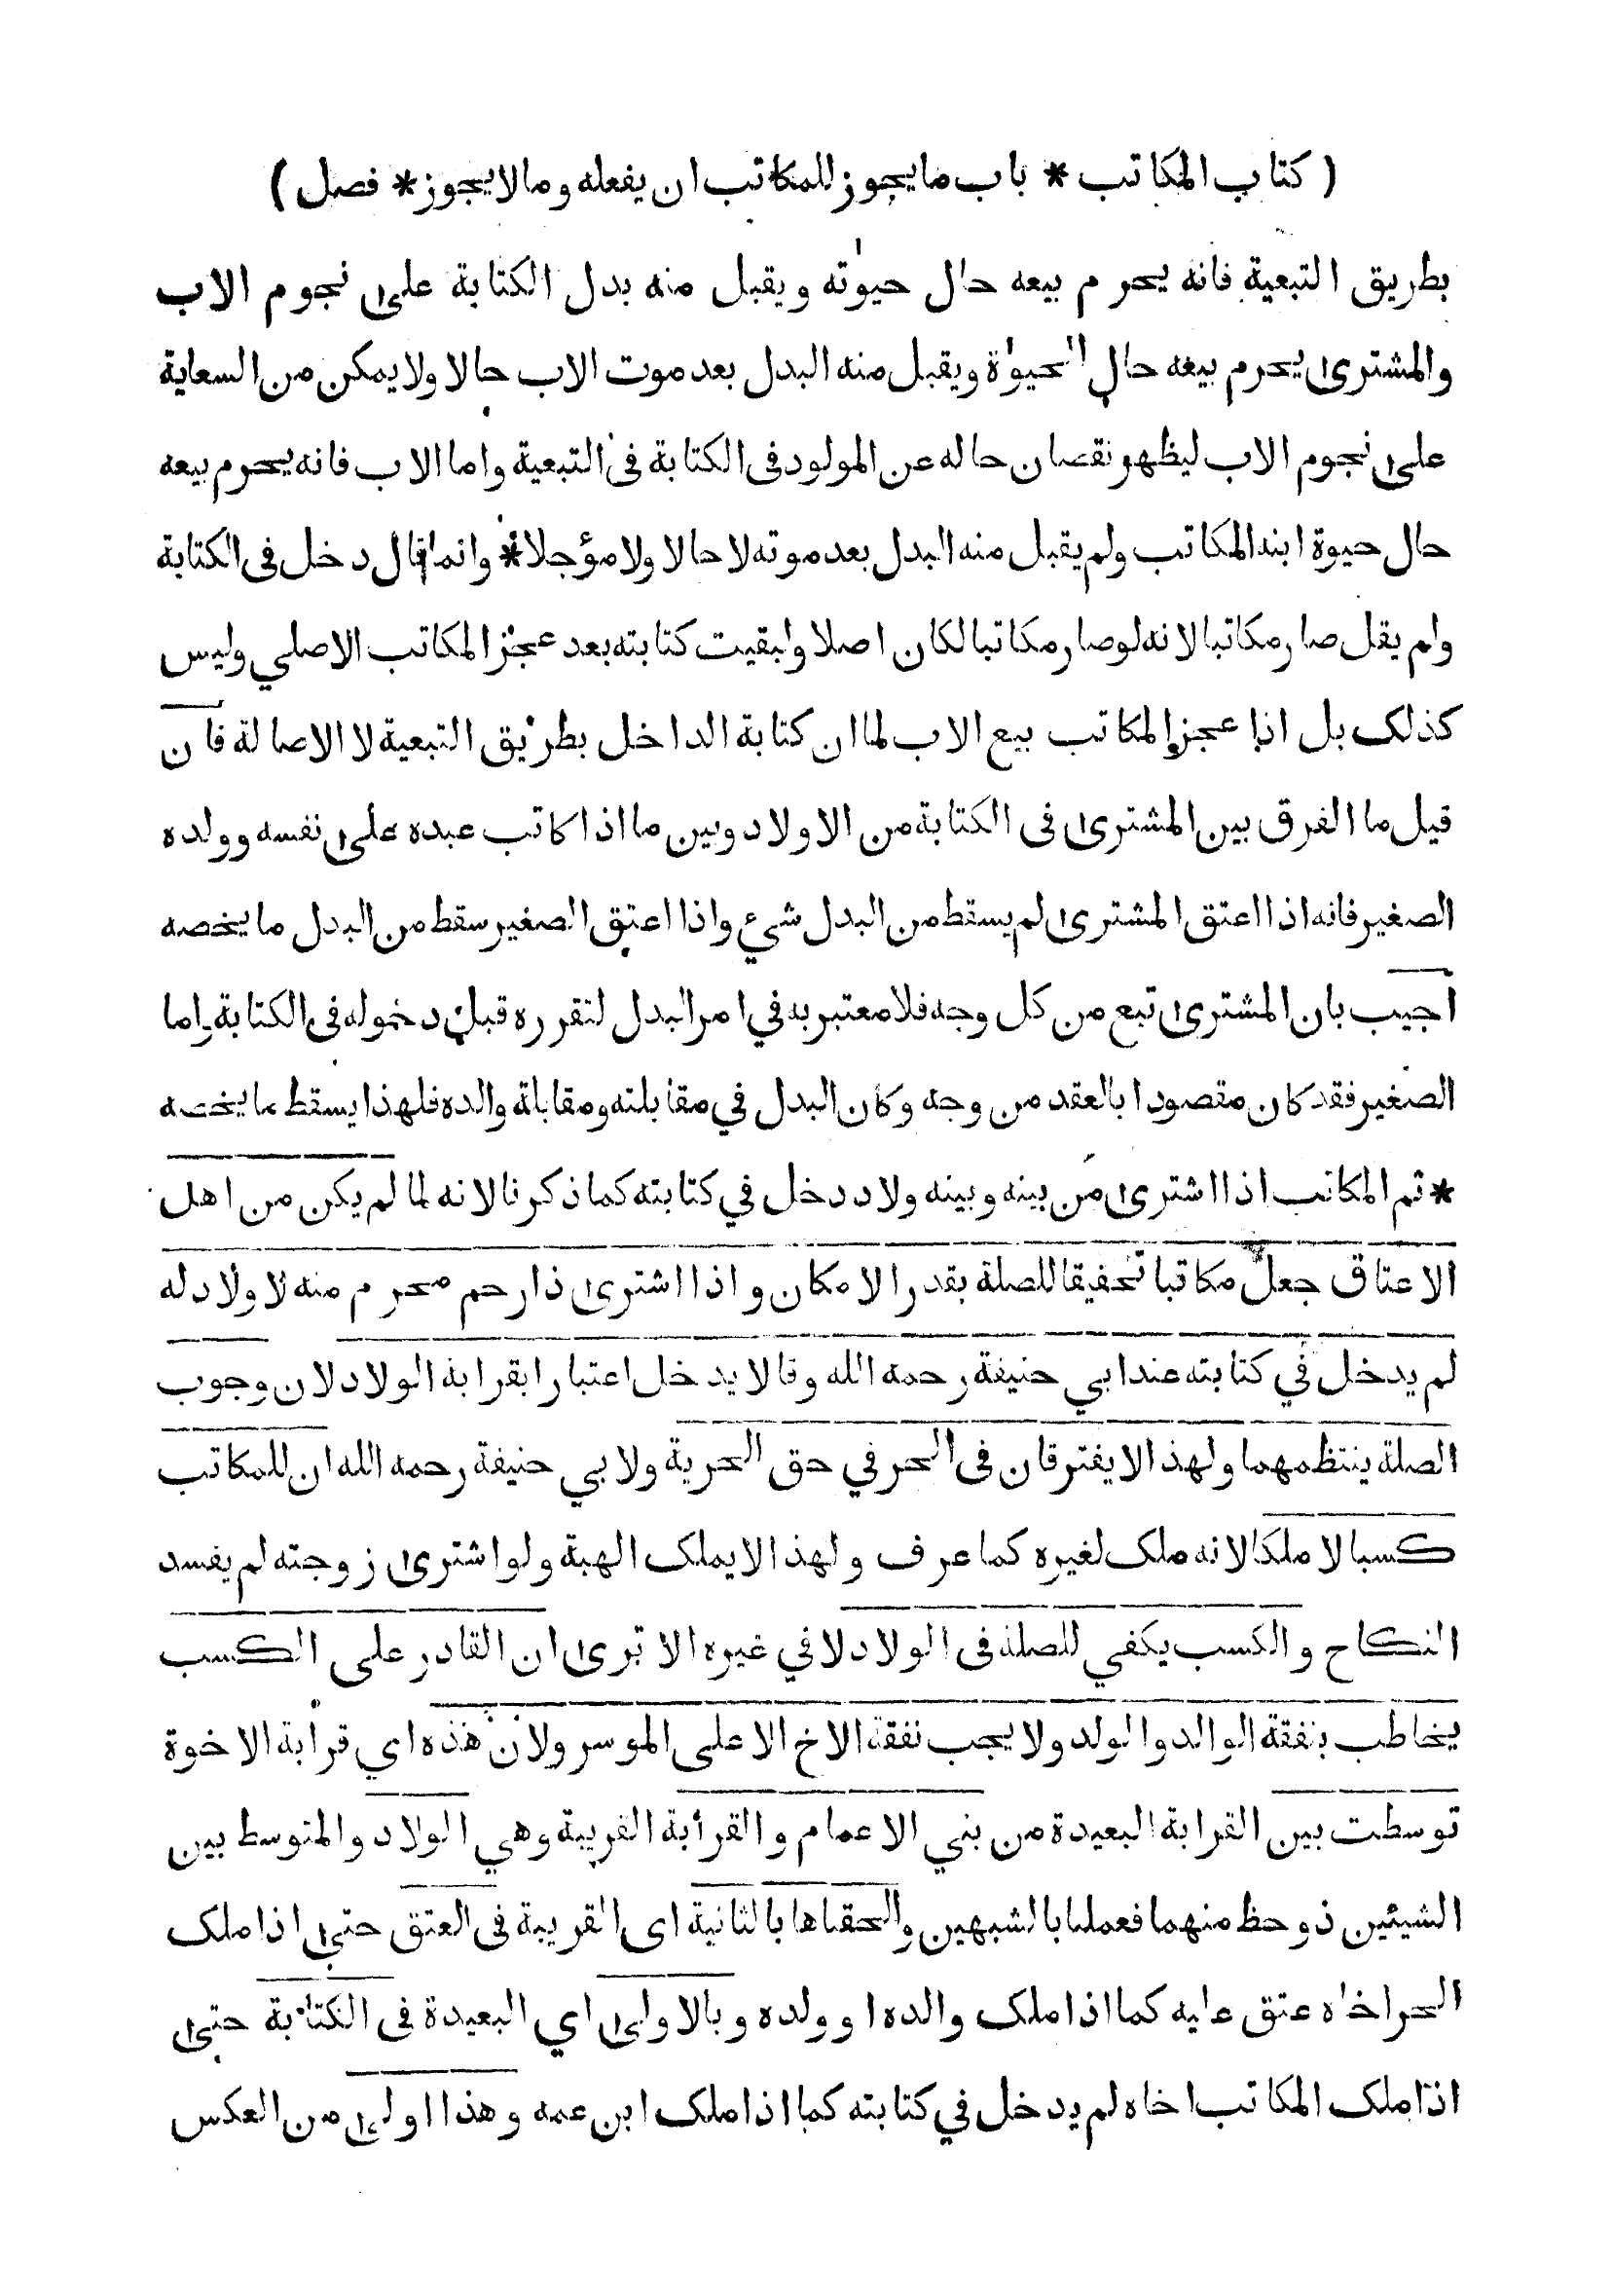 ( كتاب المكاتب * باب ما يجوز للمكاتب ان يفعله وما لا يجوز * فصل )
بطريق التبعية فانه يحرم بيعه حال حيوٰته ويقبل منه بدل الكتابة على نجوم الاب
والمشترى يحرم بيعه حال الحيوٰة ويقبل منه البدل بعد موت الاب حالا ولا يمكن من السعاية
على نجوم الاب ليظهر نقصان حاله عن المولود فى الكتابة فى التبعية واما الاب فانه يحرم بيعه
حال حيوة ابنه المكاتب ولم يقبل منه البدل بعد موته لا حالا ولا مؤجلا * وانما قال دخل فى الكتابة
ولم يقل صار مكاتبا لانه لو صار مكاتبا لكان اصلا ولبقيت كتابته بعد عجز المكاتب الاصلي وليس
كذلك بل اذا عجز المكاتب بيع الاب لما ان كتابة الداخل بطريق التبعية لا الاصالة فان
قيل ما الفرق بين المشترى فى الكتابة من الاولاد وبين ما اذا كاتب عبده على نفسه وولده
الصغير فانه اذا اعتق المشترى لم يسقط من البدل شيء واذا اعتق الصغير سقط من البدل ما يخصه
اجيب بان المشترى تبع من كل وجه فلا معتبر به في امر البدل لتقرره قبل دخوله فى الكتابة واما
الصغير فقد كان مقصودا بالعقد من وجه وكان البدل في مقابلته ومقابلة والده فلهذا يسقط ما يخصه
* ثم المكاتب اذا اشترى من بينه وبينه ولاد دخل في كتابته كما ذكرنا لانه لما لم يكن من اهل
الاعتاق جعل مكاتبا تحقيقا للصلة بقدر الامكان واذا اشترى ذا رحم محرم منه لا ولاد له
لم يدخل في كتابته عند ابي حنيفة رحمه الله وقالا يدخل اعتبارا بقرابة الولاد لان وجوب
الصلة ينتظمهما ولهذا لا يفترقان فى الحر في حق الحرية ولابي حنيفة رحمه الله ان للمكاتب
كسبا لا ملكا لانه ملك لغيره كما عرف ولهذا لا يملك الهبة ولو اشترى زوجته لم يفسد
النكاح والكسب يكفي للصلة فى الولاد لا في غيره الا ترى ان القادر على الكسب
يخاطب بنفقة الوالد والولد ولا يجب نفقة الاخ الا على الموسر ولان هذه اي قرابة الاخوة
توسطت بين القرابة البعيدة من بني الاعمام والقرابة القريبة وهي الولاد والمتوسط بين
الشيئين ذو حظ منهما فعملنا بالشبهين والحقناها بالثانية اى القريبة فى العتق حتى اذا ملك
الحر اخاه عتق عليه كما اذا ملك والده او ولده وبالاولى اي البعيدة فى الكتابة حتى
اذا ملك المكاتب اخاه لم يدخل في كتابته كما اذا ملك ابن عمه وهذا اولى من العكس